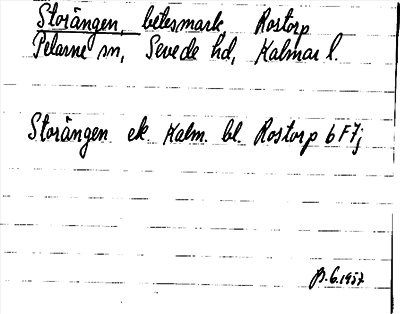 Storängen, betesmark Rostorp
Pelarne sn, Sevede hd, Kalmar l.
Storängen ek Kalm. bl. Rostorp 6 F7j
B.G. 1957